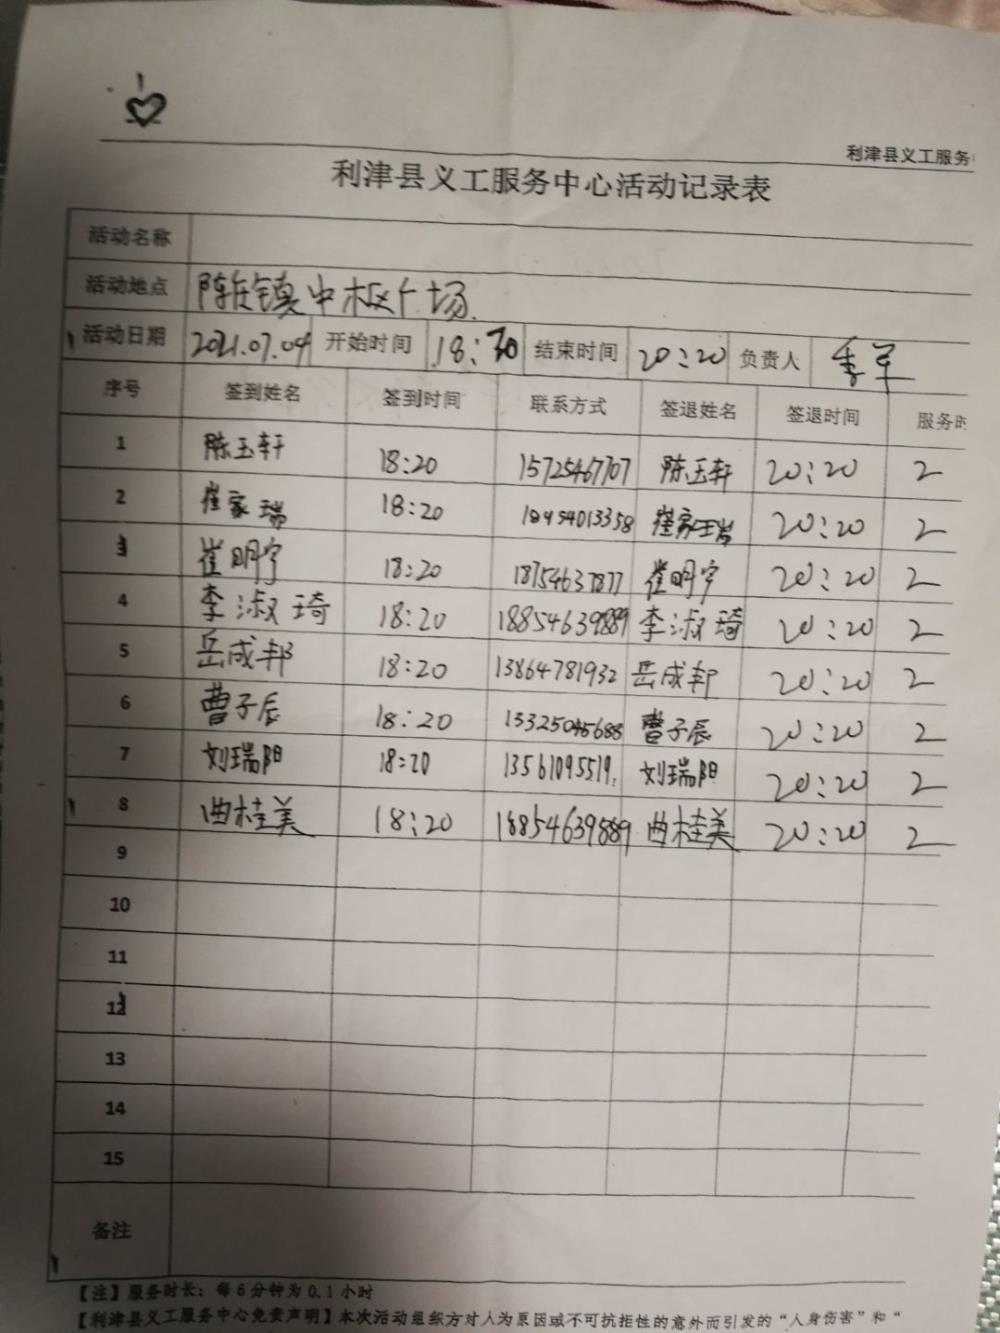 利津县义工服务
利津县义工服务中心活动记录表
活动名称
活动地点 陈庄镇中枢广场
活动日期 2021.07.04 开始时间 18:30 结束时间 20:20 负责人 李军
序号 签到姓名 签到时间 联系方式 签退姓名 签退时间 服务时
1 陈玉轩 18:20 15725467707 陈玉轩 20:20 2
2 崔家瑞 18:20 18454013358 崔家瑞 20:20 2
3 崔明宇 18:20 18754637877 崔明宇 20:20 2
4 李淑琦 18:20 18854639889 李淑琦 20:20 2
5 岳成邦 18:20 13864781932 岳成邦 20:20 2
6 曹子辰 18:20 13325045688 曹子辰 20:20 2
7 刘瑞阳 18:20 13561095519 刘瑞阳 20:20 2
8 曲桂美 18:20 18854639889 曲桂美 20:20 2
9
10
11
12
13
14
15
备注
【注】服务时长：每6分钟为0.1小时
【利津县义工服务中心免责声明】本次活动组织方对人为原因或不可抗拒性的意外而引发的“人身伤害”和“